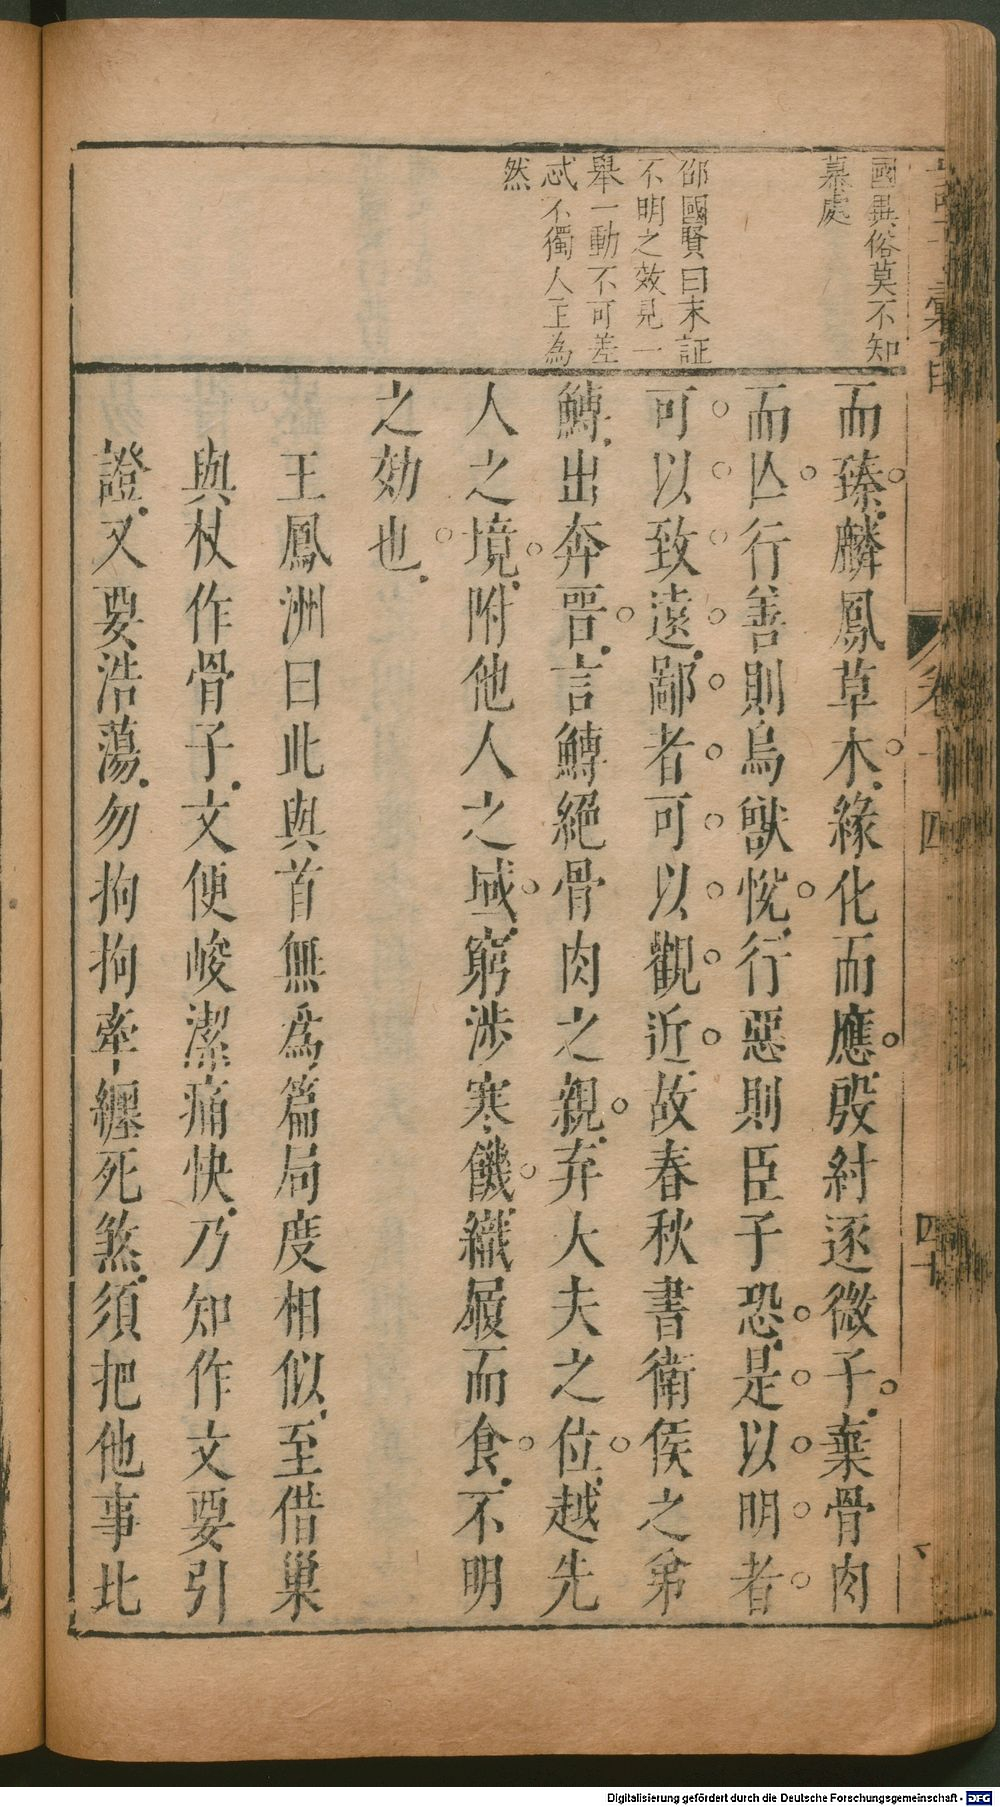 國異俗莫不知
慕處
邵國賢曰末証
不明之效見一
舉一動不可差
忒不獨人主為
然
而臻麟鳳草木緣化而應殷紂逐微子棄骨肉
而亾行善則鳥獸悅行惡則臣子恐是以明者
可以致遠鄙者可以觀近故春秋書衛侯之弟
鱄出奔晉言鱄絕骨肉之親弃大夫之位越先
人之境附他人之域窮涉寒饑織屨而食不明
之効也
王鳳洲曰此與首無為篇局度相似至借巢
與杖作骨子文便峻潔痛快乃知作文要引
證又要浩蕩勿拘拘牽纏死煞須把他事比
卷十四
四十
Digitalisierung gefördert durch die Deutsche Forschungsgemeinschaft - DFG